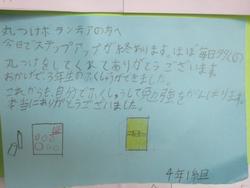 丸つけボランテアの方へ
今日でステップアップが終わります。ほぼ毎日タタくの
丸つけをしてくれてありがとうございます。
おかげで、3年生のふくしゅうができました。
これからも、自分でふくしゅうして勉強をがんばります。
本当にありがとうございました。
4年1組